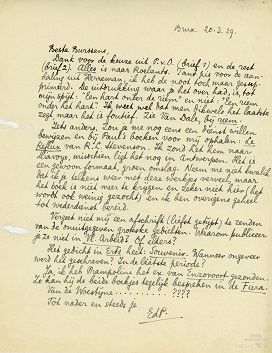 Brux. 20.3.29.
Beste Burssens,
Dank voor de keuze uit P.v.O. (brief 1) en de rest
(brief 2). Alles is naar Roelants. Tant pis voor de aan-
haling uit Herreman, ik heb de noot toch maar gesup-
primeerd. De uitdrukking waar je het over had, is, tot
mijn spijt: "Een hart onder de riem" en niet: "Een riem
onder het hart". Ik weet wel dat men dikwels het laatste
zegt maar het is foutief. Zie Van Dale, bij riem.
Iets anders. Zou je me nog eens een dienst willen
bewijzen en bij Paul's boeken voor mij ophalen: Le
Reflux van R.L. Stevenson. Ik zond het hem naar
Havrog, misschien ligt het nog in Antwerpen. Het is
een gewoon formaat, groen omslag. Neem me niet kwalik
dat ik je telkens weer met deze werkjes verveel maar
het boek is niet meer te krijgen en zeker niet hier (het
wordt ook weinig gezocht) en ik ben overigens geheel
tot wederdienst bereid.
Vergeet niet mij een afschrift (liefst getypt) te zenden
van de onuitgegeven groteske gedichten. Waarom publiceer
je ze niet in Vl. Arbeid? Of elders?
Het gedicht in Erts heet: Souvenir. Wanneer ongeveer
werd het geschreven? In de laatste periode?
Ja, ik heb Mrampolini het ex. van Enzovoort gezonden.
Zo kan hij de beide boekjes tegelijk bespreken in de Fiera.
Van de Woestijne .......... ????
Tot nader en steeds je
EdP.